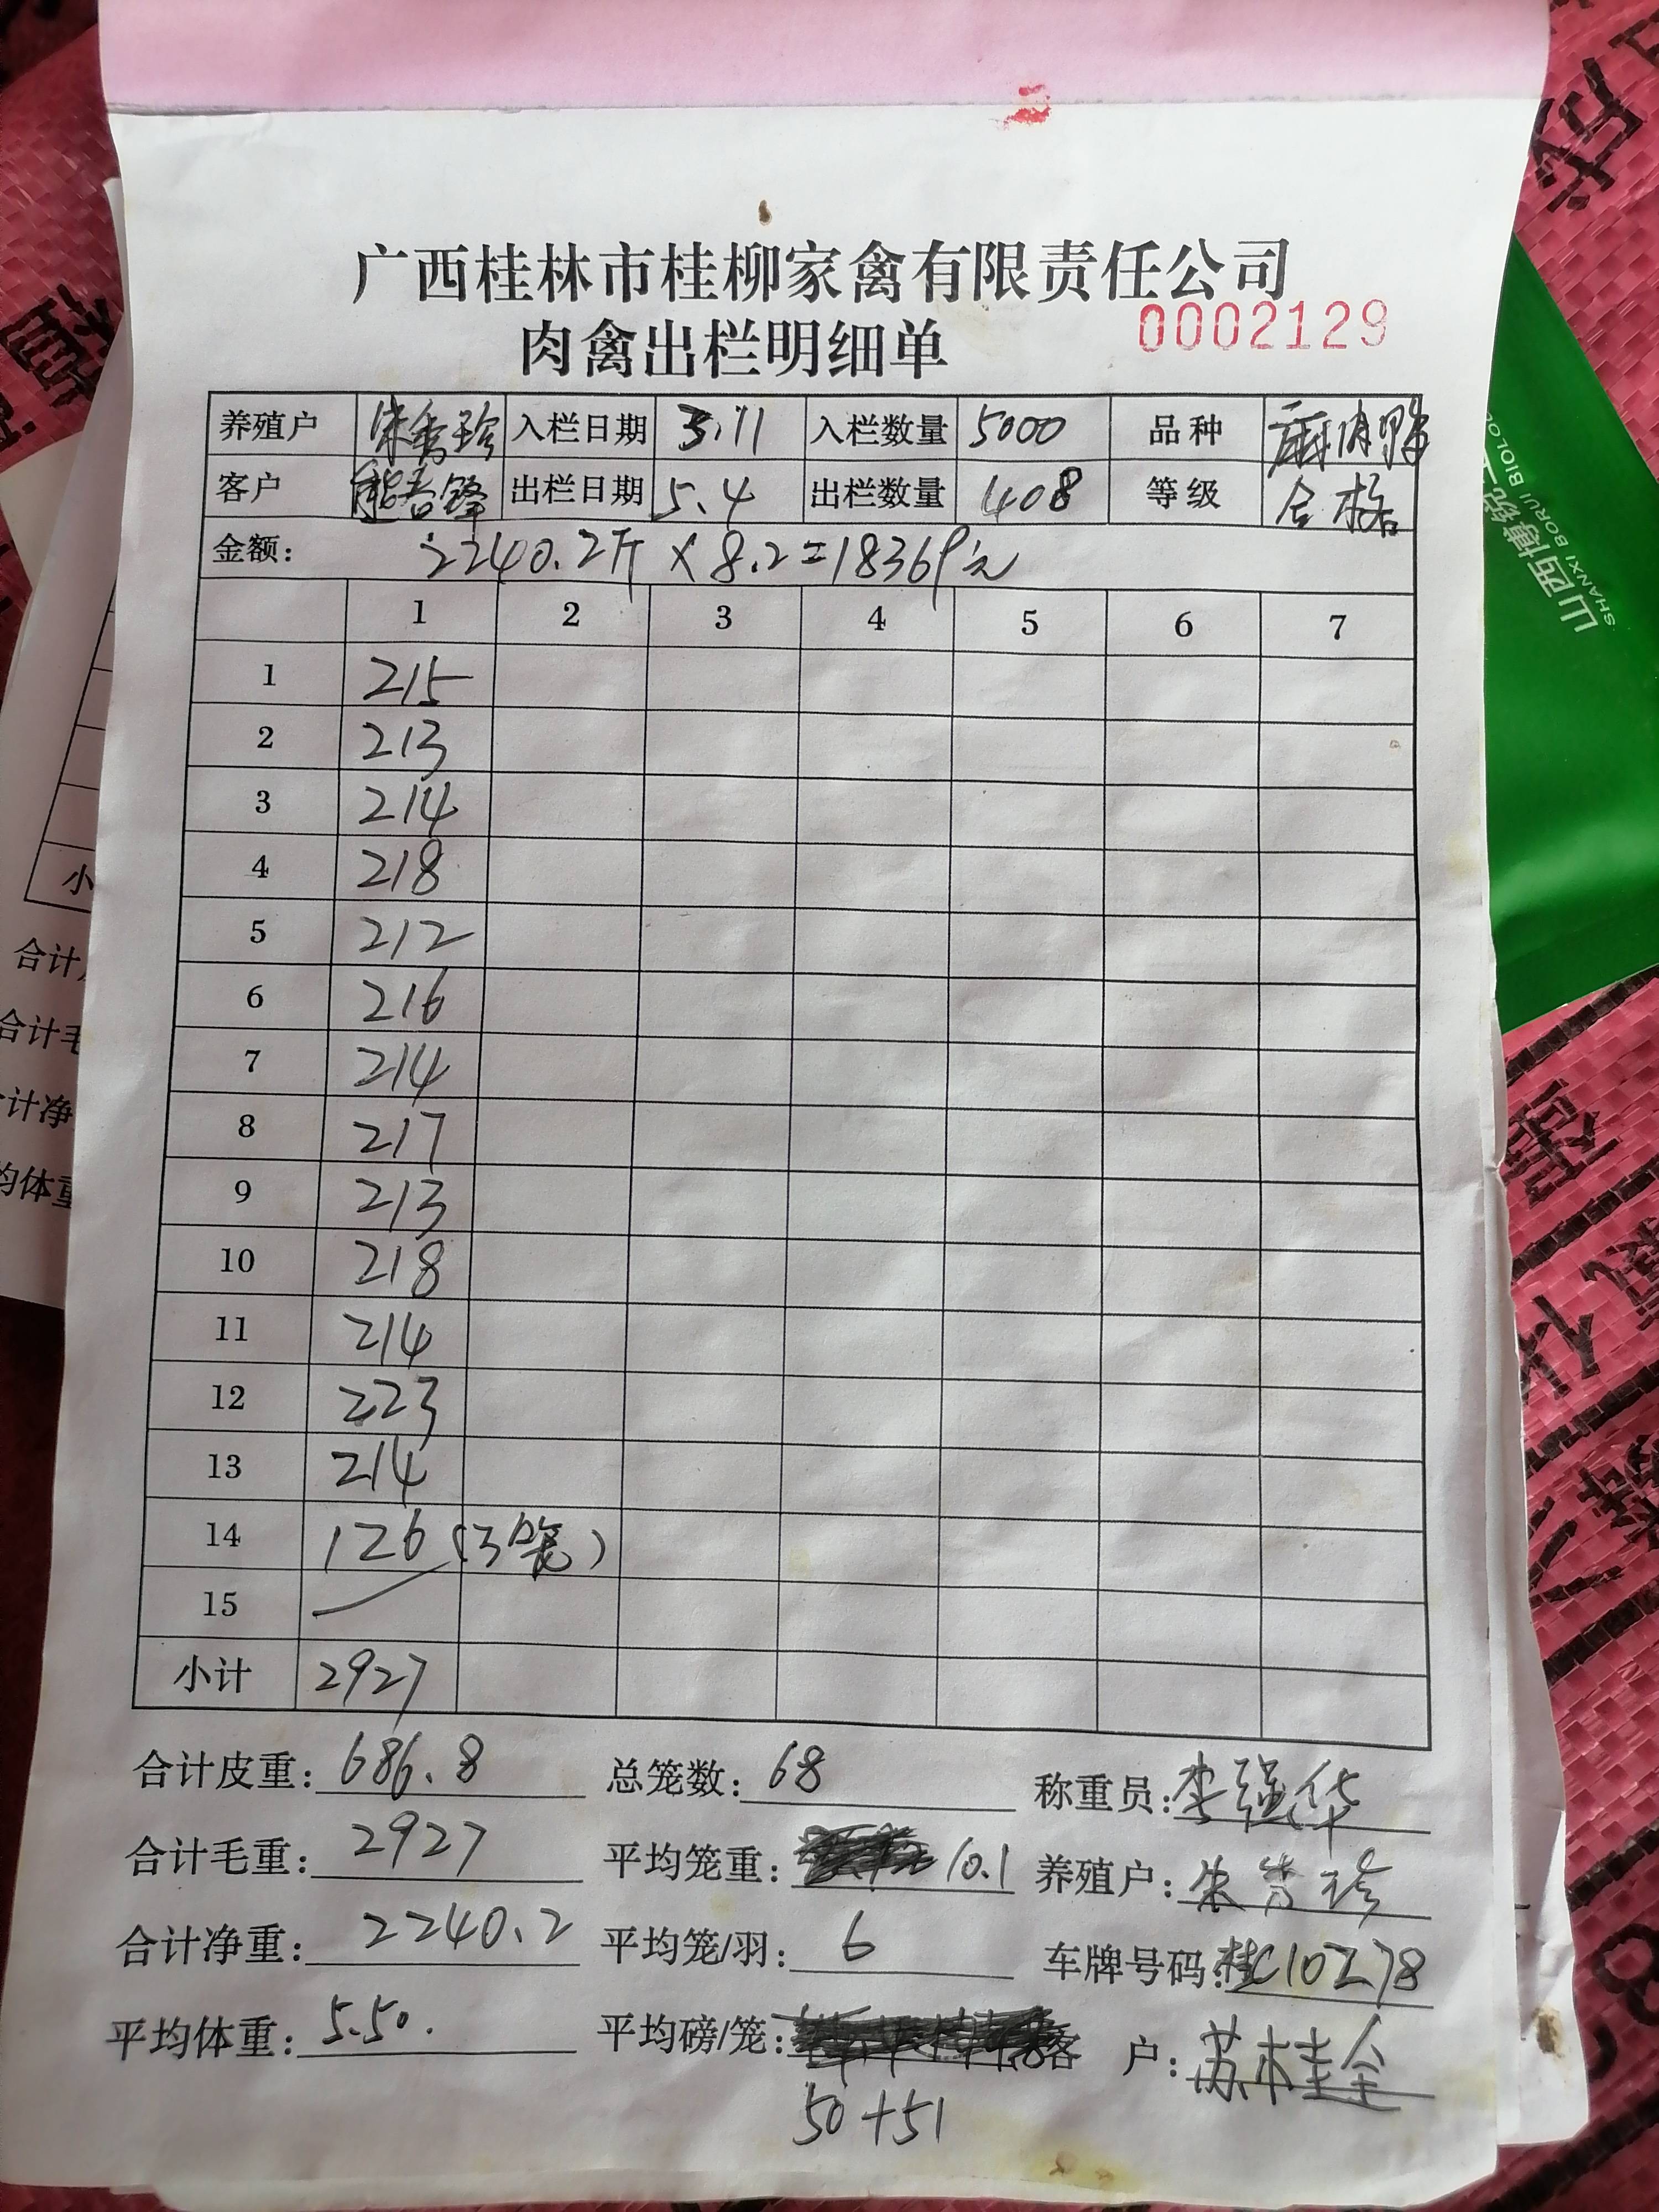 广西桂林市桂柳家禽有限责任公司
肉禽出栏明细单 0002129
养殖户 朱秀珍 入栏日期 3.11 入栏数量 5000 品种 麻肉鸭
客户 出栏日期 5.4 出栏数量 408 等级 合格
金额: 2240.2斤×8.2=18369元
1 2 3 4 5 6 7
1 215
2 213
3 214
4 218
5 212
6 216
7 214
8 217
9 213
10 218
11 214
12 223
13 214
14 126 (3笼)
15
小计 2927
合计皮重: 686.8 总笼数: 68 称重员: 李强华
合计毛重: 2927 平均笼重: 10.1 养殖户: 朱秀珍
合计净重: 2240.2 平均笼/羽: 6 车牌号码: 桂C10Z78
平均体重: 5.50. 平均磅/笼: 客户: 苏桂全
50+51
小
合计
合计毛
计净
均体重
山西博瑞
SHANXI BORUI BIOLO